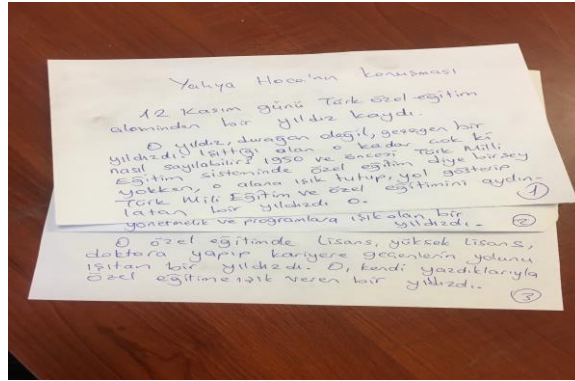 Yahya Hoca'nın konuşması
12 Kasım günü Türk özel eğitim
aleminden bir yıldız kaydı.
O yıldız, durağan değil, gezegen bir
yıldızdı. Işıttığı alan o kadar çok ki
nasıl sayılabilir? 1950 ve öncesi Türk Milli
Eğitim sisteminde özel eğitim diye birşey
yokken, o alana ışık tutup, yol gösterip
Türk Mili Eğitim ve özel eğitimini aydın-
latan bir yıldızdı o.
1
yönetmelik ve programlara ışık olan bir
yıldızdı.
2
O özel eğitimde Lisans, yüksek Lisans,
doktora yapıp kariyere geçenlerin yolunu
ışıtan bir yıldızdı. O, kendi yazdıklarıyla
özel eğitime ışık veren bir yıldızdı.
3